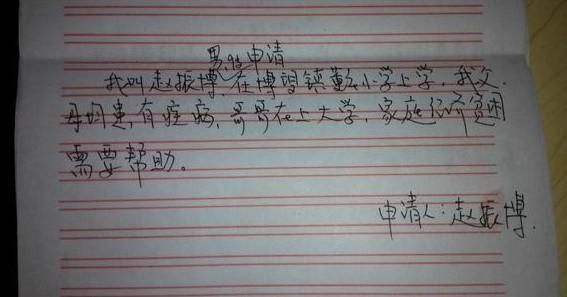 申请
我叫赵振博,在博望镇 小学上学,我父
母均患有 病,哥哥在上大学,家庭经济贫困
需要帮助。
申请人:赵振博.